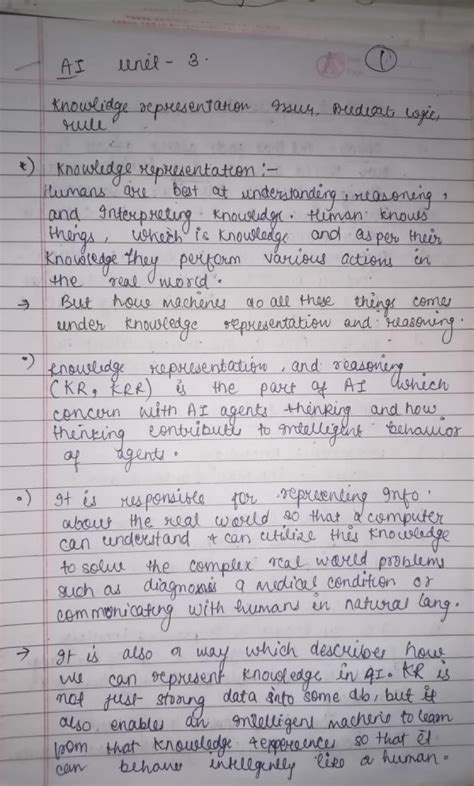 1
AI Unit - 3.
Knowlidge representation Issues, Predicat, Logic,
rule
*) Knowledge representation :-
Humans are best at understanding, reasoning,
and Interpreting knowledge. Human knows
things, which is knowledge and as per their
knowledge they perform various actions in
the real world.
→ But how machines do all these things comes
under knowledge representation and reasoning.
•) Knowledge representation, and reasoning
(KR, KRR) is the part of AI which
concern with AI agents thinking and how
thinking contribute to Intelligent behavior
of agents.
•) It is responsible for representing Info.
about the real world so that a computer
can understand & can utilize this knowledge
to solve the complex real world problems
such as diagnosis a medical condition or
communicating with humans in natural lang.
→ It is also a way which describes how
we can represent knowledge in AI. KR is
not just storing data into some db, but it
also enables an Intelligent machine to learn
from that knowledge & experiences so that it
can behave intelligently like a human.